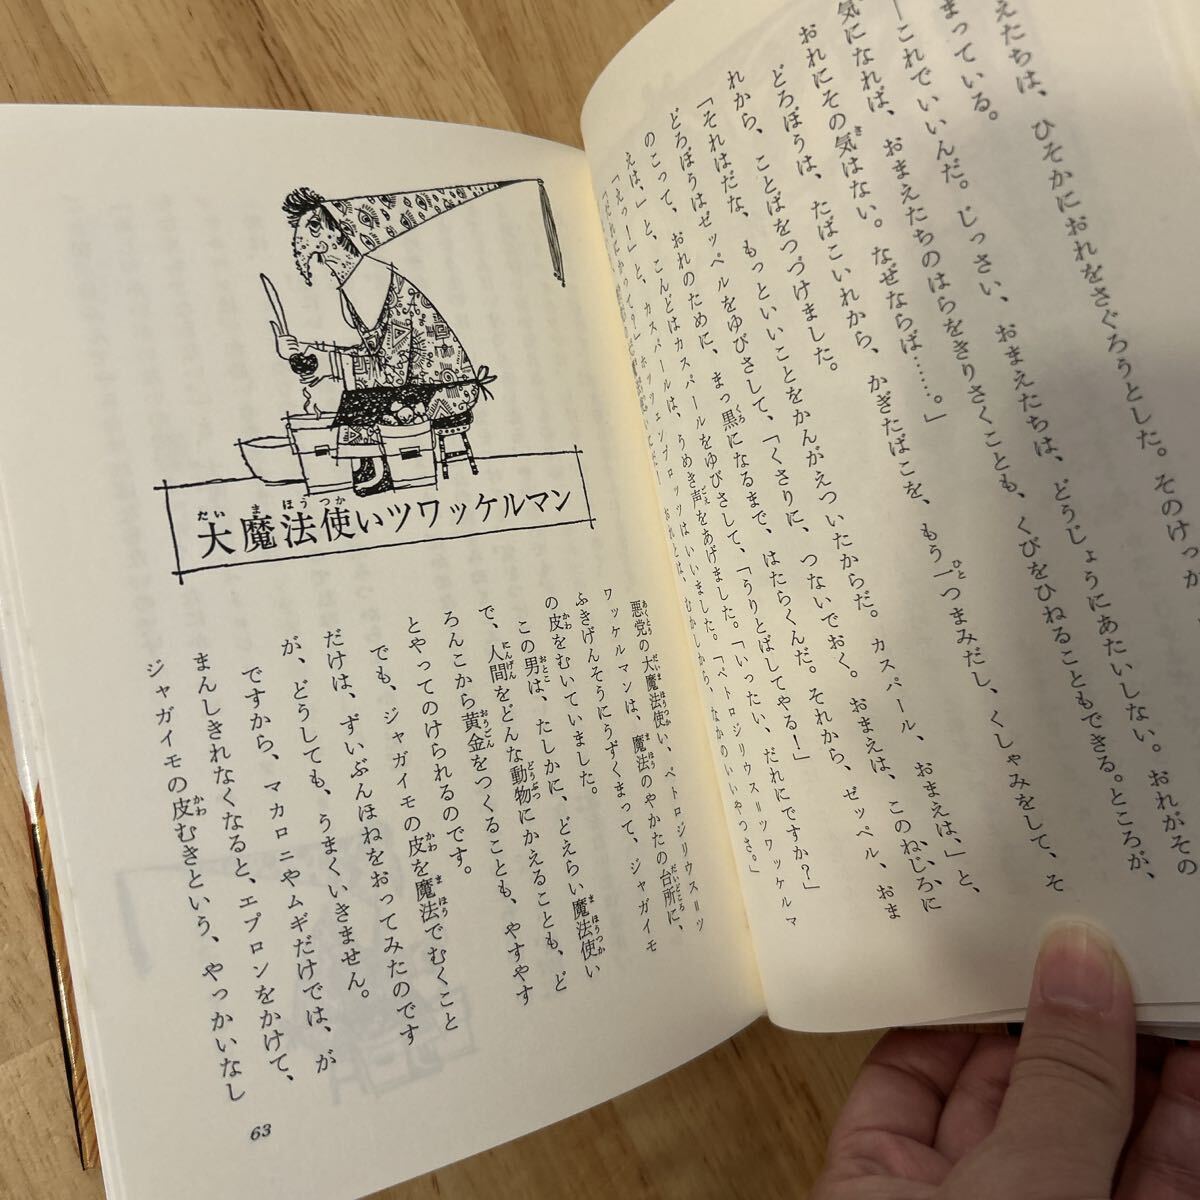 えたちは、ひそかにおれをさぐろうとした。そのけっか
まっている。
―これでいいんだ。じっさい、おまえたちは、どうじょうにあたいしない。おれがその
気になれば、おまえたちのはらをきりさくことも、くびをひねることもできる。ところが、
おれにその気はない。なぜならば……。」
どろぼうは、たばこいれから、かぎたばこを、もう一つまみだし、くしゃみをして、そ
れから、ことばをつづけました。
「それはだな、もっといいことをかんがえついたからだ。カスパール、おまえは、」と、
どろぼうはゼッペルをゆびさして、「くさりに、つないでおく。おまえは、このねじろに
のこって、おれのために、まっ黒になるまで、はたらくんだ。それから、ゼッペル、おま
えは、」と、こんどはカスパールをゆびさして、「うりとばしてやる！」
「えっ！」と、カスパールは、うめき声をあげました。「いったい、だれにですか？」
「だれにかって？」ホッツェンプロッツはいいました。「ペトロジリウス＝ツワッケルマ
おれとは、むかしから、なかのいいやつさ。」
大魔法使いツワッケルマン
悪党の大魔法使い、ペトロジリウス＝ツ
ワッケルマンは、魔法のやかたの台所に、
ふきげんそうにうずくまって、ジャガイモ
の皮をむいていました。
この男は、たしかに、どえらい魔法使い
で、人間をどんな動物にかえることも、ど
ろんこから黄金をつくることも、やすやす
とやってのけられるのです。
でも、ジャガイモの皮を魔法でむくこと
だけは、ずいぶんほねをおってみたのです
が、どうしても、うまくいきません。
ですから、マカロニやムギだけでは、が
まんしきれなくなると、エプロンをかけて、
ジャガイモの皮むきという、やっかいなし
63